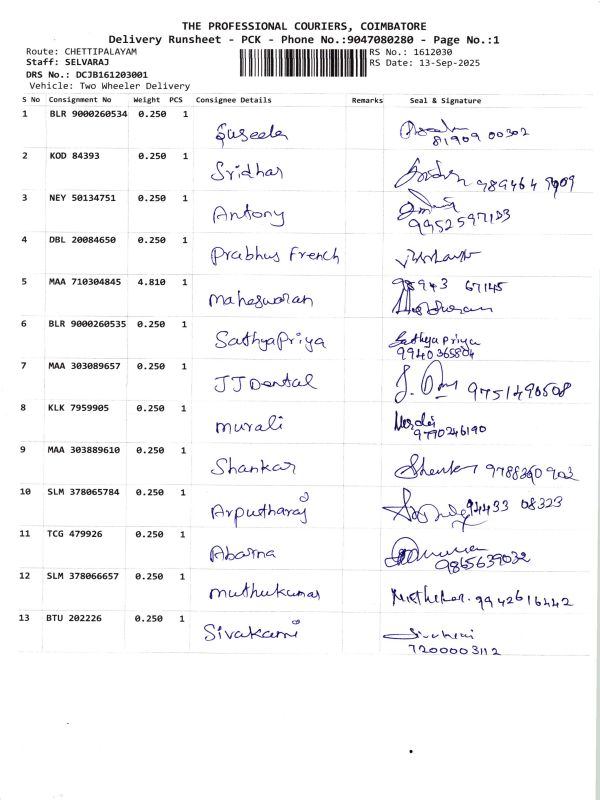 THE PROFESSIONAL COURIERS, COIMBATORE
Delivery Runsheet - PCK - Phone No.:9047080280 - Page No.:1
Route: CHETTIPALAYAM RS No.: 1612030
Staff: SELVARAJ RS Date: 13-Sep-2025
DRS No.: DCJB161203001
Vehicle: Two Wheeler Delivery
S No Consignment No Weight PCS Consignee Details Remarks Seal & Signature
1 BLR 9000260534 0.250 1 Suseela
81909 00302
2 KOD 84393 0.250 1 Sridhar 989464 9909
3 NEY 50134751 0.250 1 Antony
9952597133
4 DBL 20084650 0.250 1 Prabhus French
5 MAA 710304845 4.810 1 Maheswaran 98943 67145
6 BLR 9000260535 0.250 1 SathyaPriya Sathya Priya
9940365804
7 MAA 303089657 0.250 1 JJDental 9751490508
8 KLK 7959905 0.250 1 murali
9790246190
9 MAA 303889610 0.250 1 Shankar 9788360902
10 SLM 378065784 0.250 1 Arputharaj 94433 08323
11 TCG 479926 0.250 1 Abarna
9865639032
12 SLM 378066657 0.250 1 muthukumar 9942616442
13 BTU 202226 0.250 1 Sivakami
7200003112